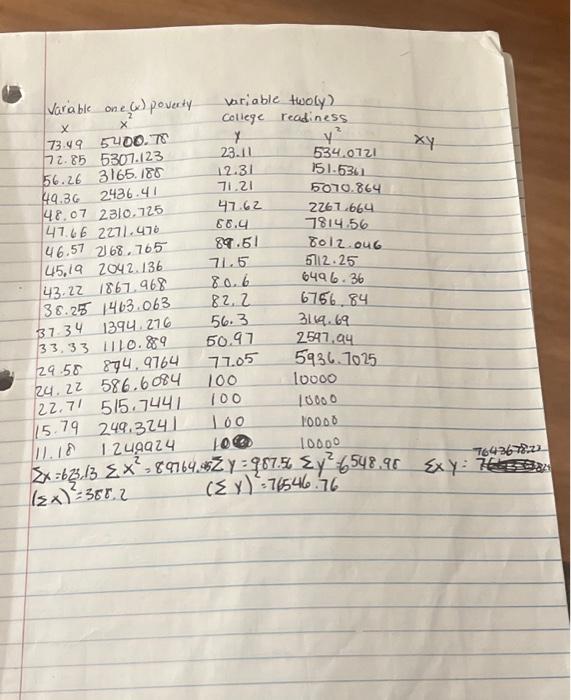 Variable one (x) poverty variable two(y)
College readiness
x x² y y² xy
73.49 5400.78 23.11 534.0721
72.85 5307.123 12.31 151.5361
56.26 3165.188 71.21 5070.864
49.36 2436.41 47.62 2267.664
48.07 2310.725 88.4 7814.56
47.66 2271.476 89.51 8012.046
46.57 2168.765 71.5 5112.25
45.19 2042.136 80.6 6496.36
43.22 1867.968 82.2 6756.84
38.25 1463.063 56.3 3169.69
37.34 1394.276 50.97 2597.94
33.33 1110.889 77.05 5936.7025
29.58 874.9764 100 10000
24.22 586.6084 100 10000
22.71 515.7441 100 10000
15.79 249.3241 100 10000
11.18 1249924
Σx=623.13 Σx²=89764.85 Σy=987.56 Σy²=6548.98 Σxy: 7643678.23
(Σx)²=388.2 (Σy)²=76546.76